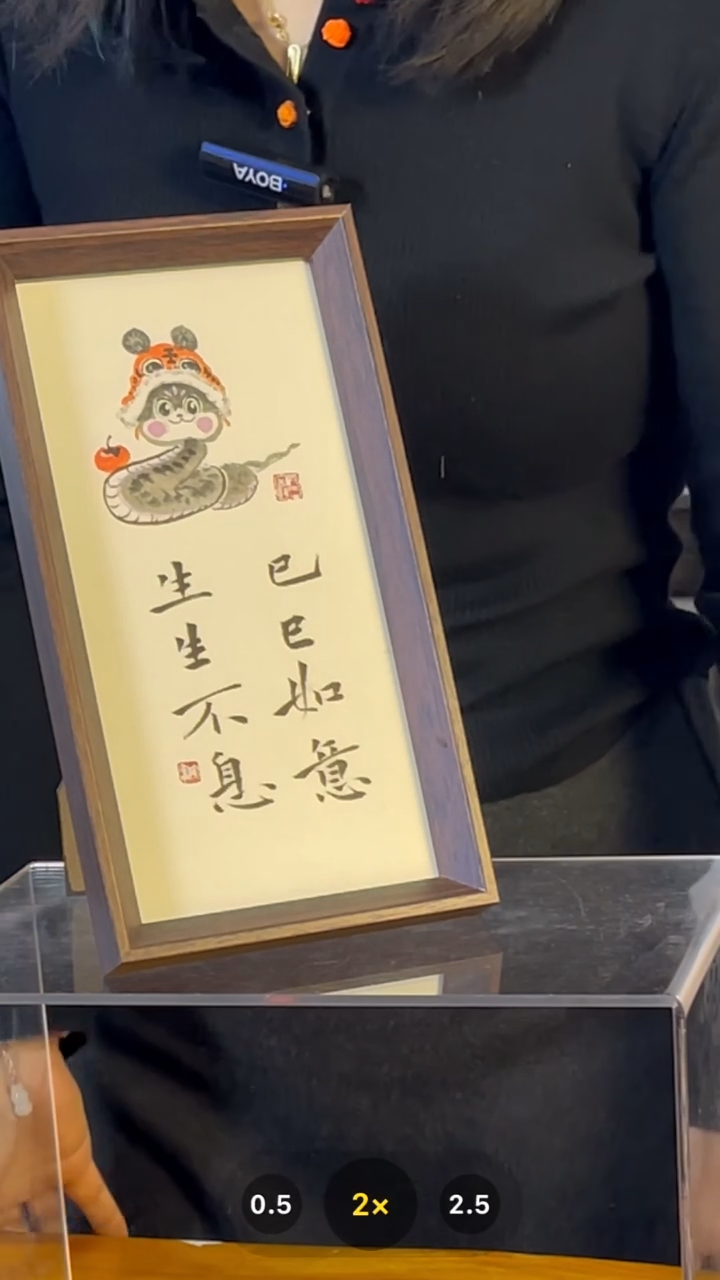 BOYA
巳巳如意
生生不息
0.5 2× 2.5